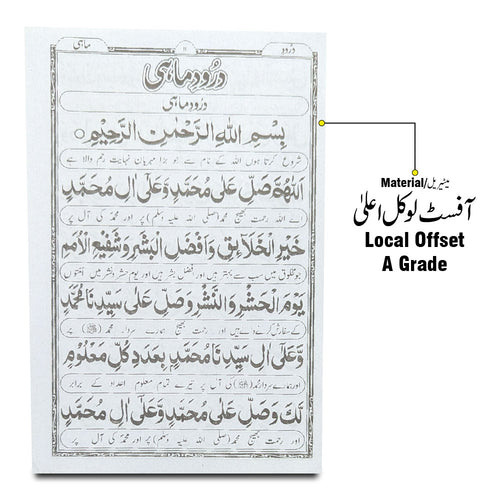 درود
۱۱
ماہی
درود ماہی
درود ماہی
بِسْمِ اللّٰهِ الرَّحْمٰنِ الرَّحِیْمِ
شروع کرتا ہوں اللہ کے نام سے جو بڑا مہربان نہایت رحم والا ہے
اَللّٰهُمَّ صَلِّ عَلٰی مُحَمَّدٍ وَّعَلٰی اٰلِ مُحَمَّدٍ
اے اللہ رحمت بھیج محمد (صلی اللہ علیہ وسلم) پر اور محمد کی آل پر
خَیْرِ الْخَلَآئِقِ وَاَفْضَلِ الْبَشَرِ وَشَفِیْعِ الْاُمَمِ
جو مخلوق میں سب سے بہتر ہیں اور افضل بشر ہیں اور یوم حشر و نشر میں امتوں
یَوْمَ الْحَشْرِ وَالنَّشْرِ وَصَلِّ عَلٰی سَیِّدِنَا مُحَمَّدٍ
کے سفارش کرنے والے ہیں اور رحمت بھیج ہمارے سردار محمد (ﷺ) پر
وَّعَلٰی اٰلِ سَیِّدِنَا مُحَمَّدٍ بِعَدَدِ كُلِّ مَعْلُوْمٍ
اور ہمارے سردار محمد (ﷺ) کی آل پر تیرے تمام معلوم اعداد کے برابر
لَّكَ وَصَلِّ عَلٰی مُحَمَّدٍ وَّعَلٰی اٰلِ مُحَمَّدٍ
اور رحمت بھیج محمد (صلی اللہ علیہ وسلم) پر اور محمد کی آل پر
Material/میٹیریل
آفسٹ لوکل اعلیٰ
Local Offset
A Grade